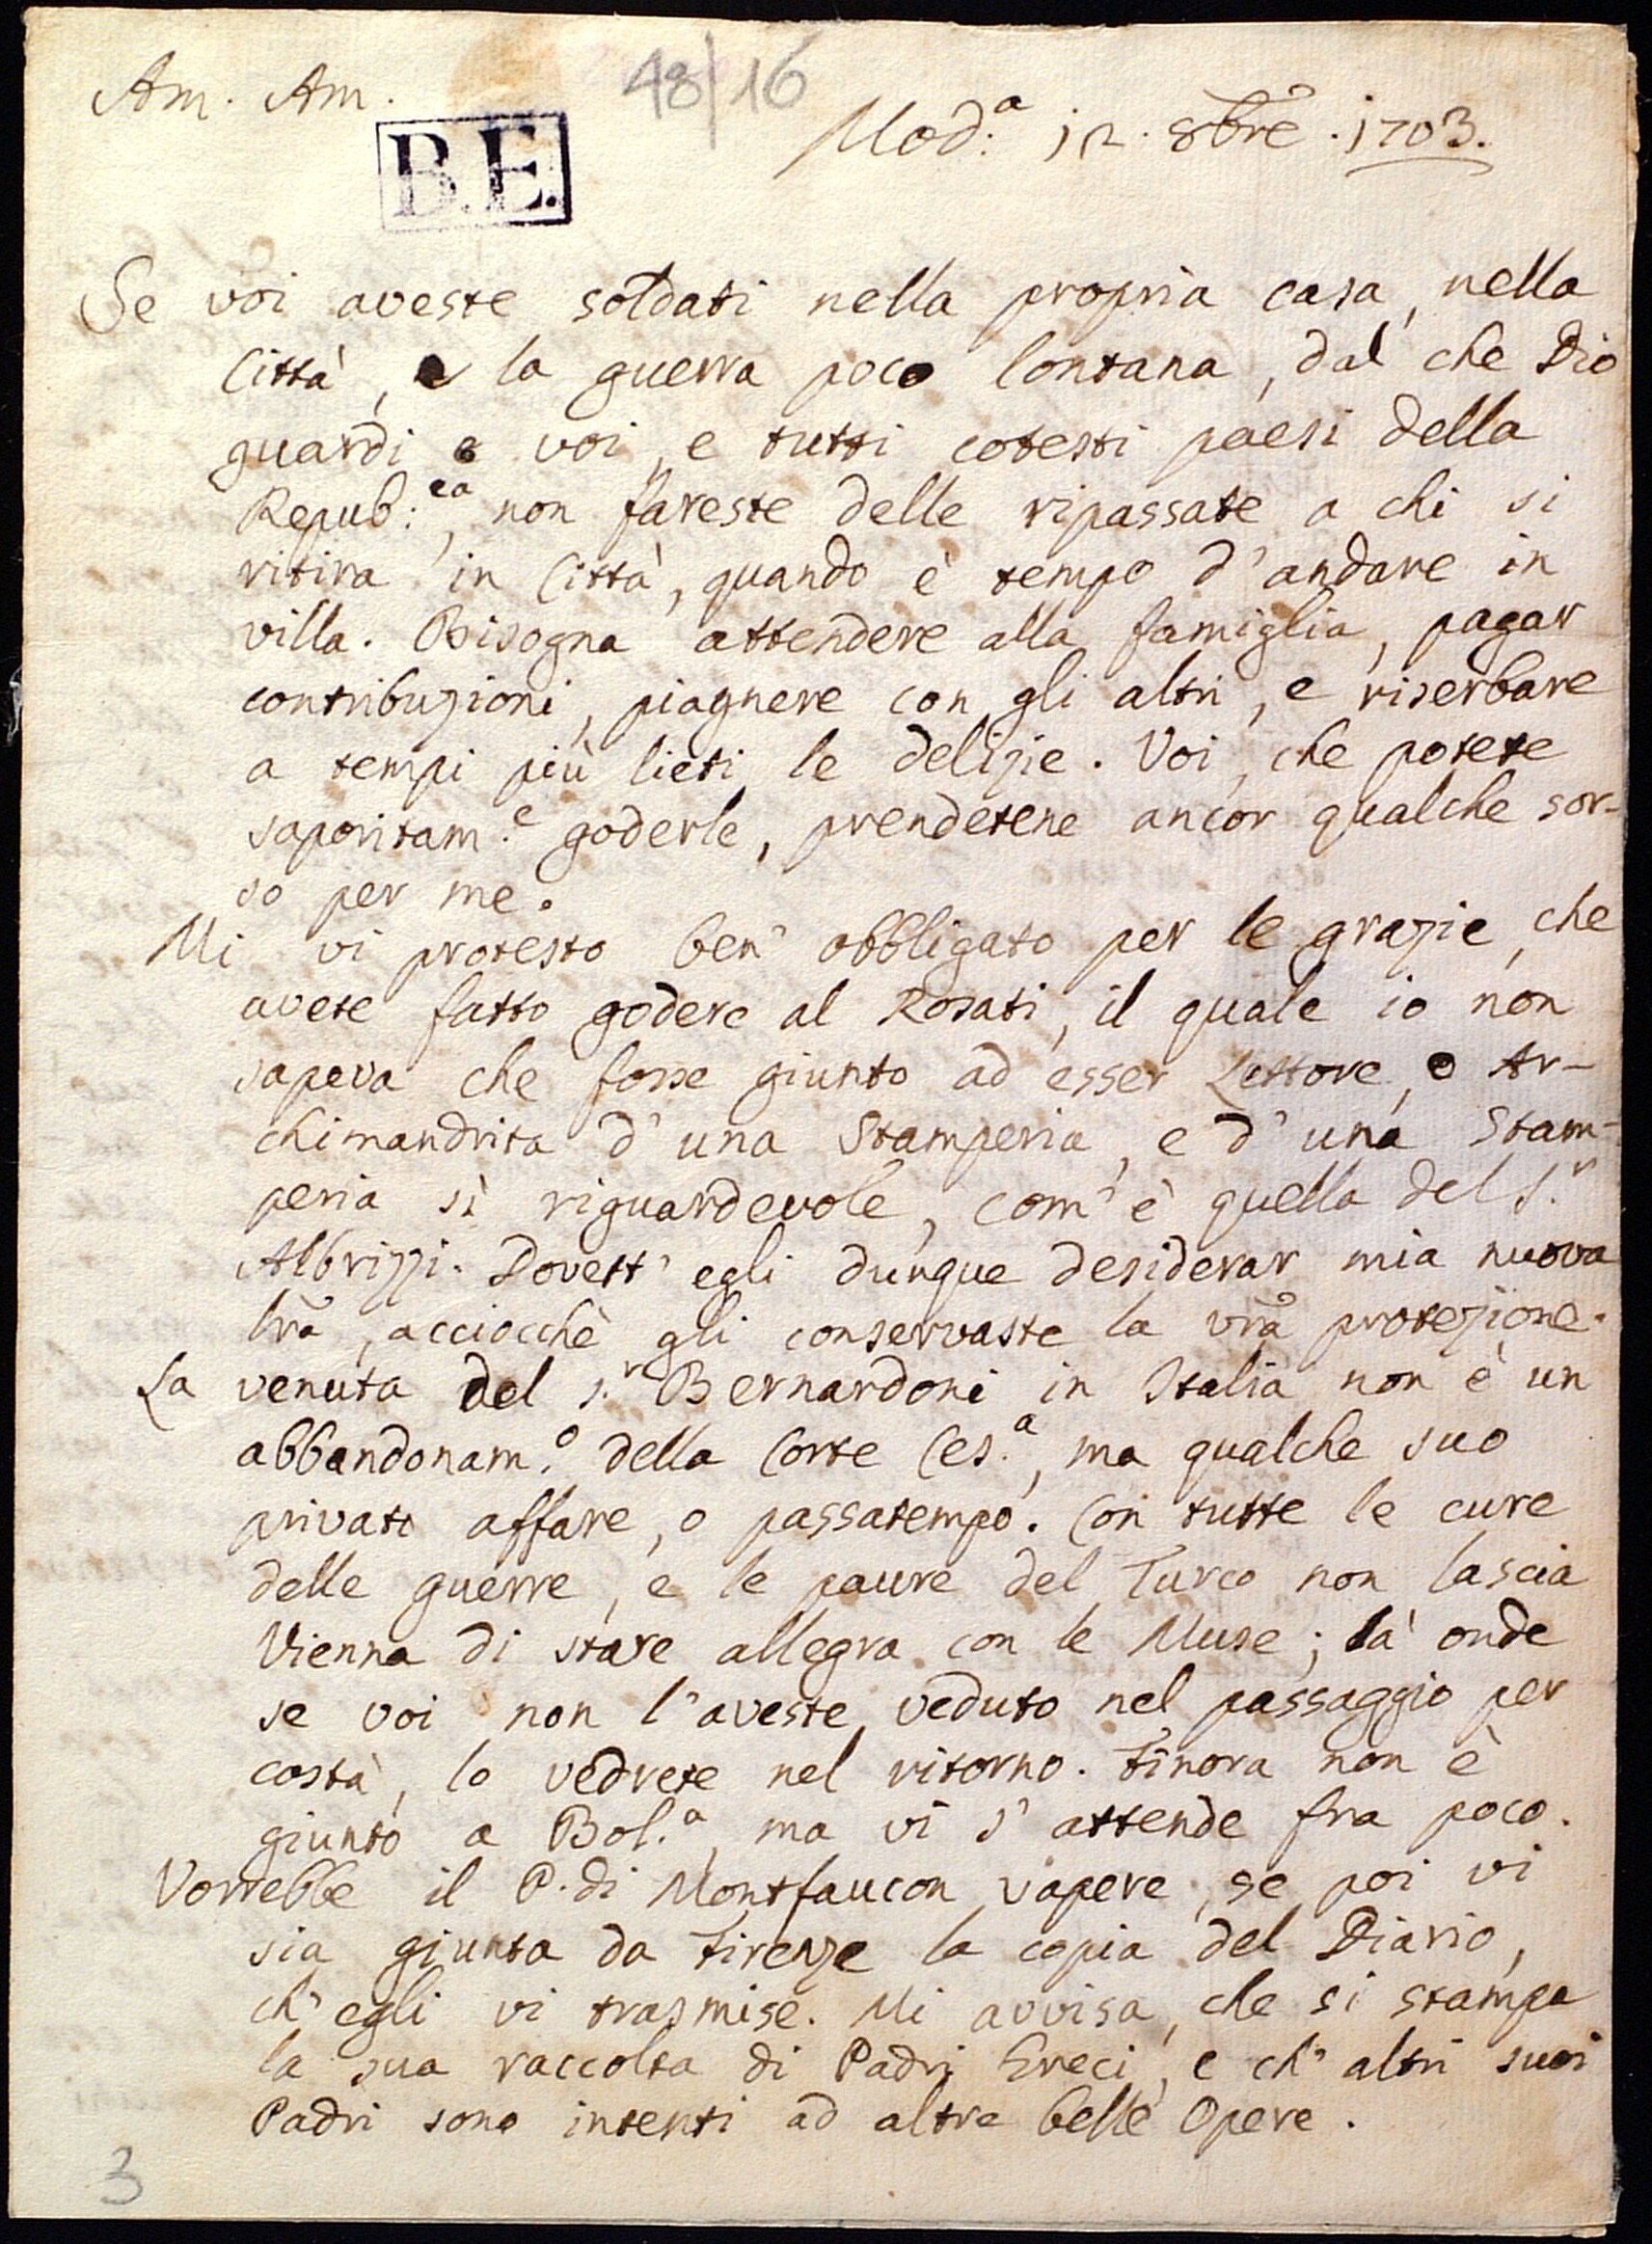 Am. Am.
48/16
B.E.
Mod:ª 12. 8bre. 1703.
Se voi aveste soldati nella propria casa, nella
Città, e la guerra poco lontana, dal che Dio
guardi e voi, e tutti cotesti paesi della
Repub:ca, non fareste delle ripassate a chi si
ritira in Città, quando è tempo d'andare in
villa. Bisogna attendere alla famiglia, pagar
contribuzioni, piagnere con gli altri, e riserbare
a tempi più lieti le delizie. Voi, che potete
saporitam.e goderle, prendetene ancor qualche sor-
so per me.
Mi vi protesto ben' obbligato per le grazie, che
avete fatto godere al Rosati, il quale io non
sapeva che fosse giunto ad esser Lettore, e Ar-
chimandrita d'una Stamperia, e d'una Stam-
peria sì riguardevole, com'è quella del S.r
Albrizzi. Dovett' egli dunque desiderar mia nuova
lra, acciocchè gli conservaste la vra protezione.
La venuta del S.r Bernardoni in Italia non è un
abbandonam.o della Corte Ces.a, ma qualche suo
privato affare, o passatempo. Con tutte le cure
delle guerre, e le paure del Turco non lascia
Vienna di stare allegra con le Muse; là onde
se voi non l'aveste veduto nel passaggio per
costà, lo vedrete nel ritorno. Finora non è
giunto a Bol.a, ma vi s'attende fra poco.
Vorrebbe il P. di Montfaucon sapere, se poi vi
sia giunta da Firenze la copia del Diario,
ch'egli vi trasmise. Mi avvisa, che si stampa
la sua raccolta di Padri Greci, e ch'altri suoi
Padri sono intenti ad altre belle Opere.
3